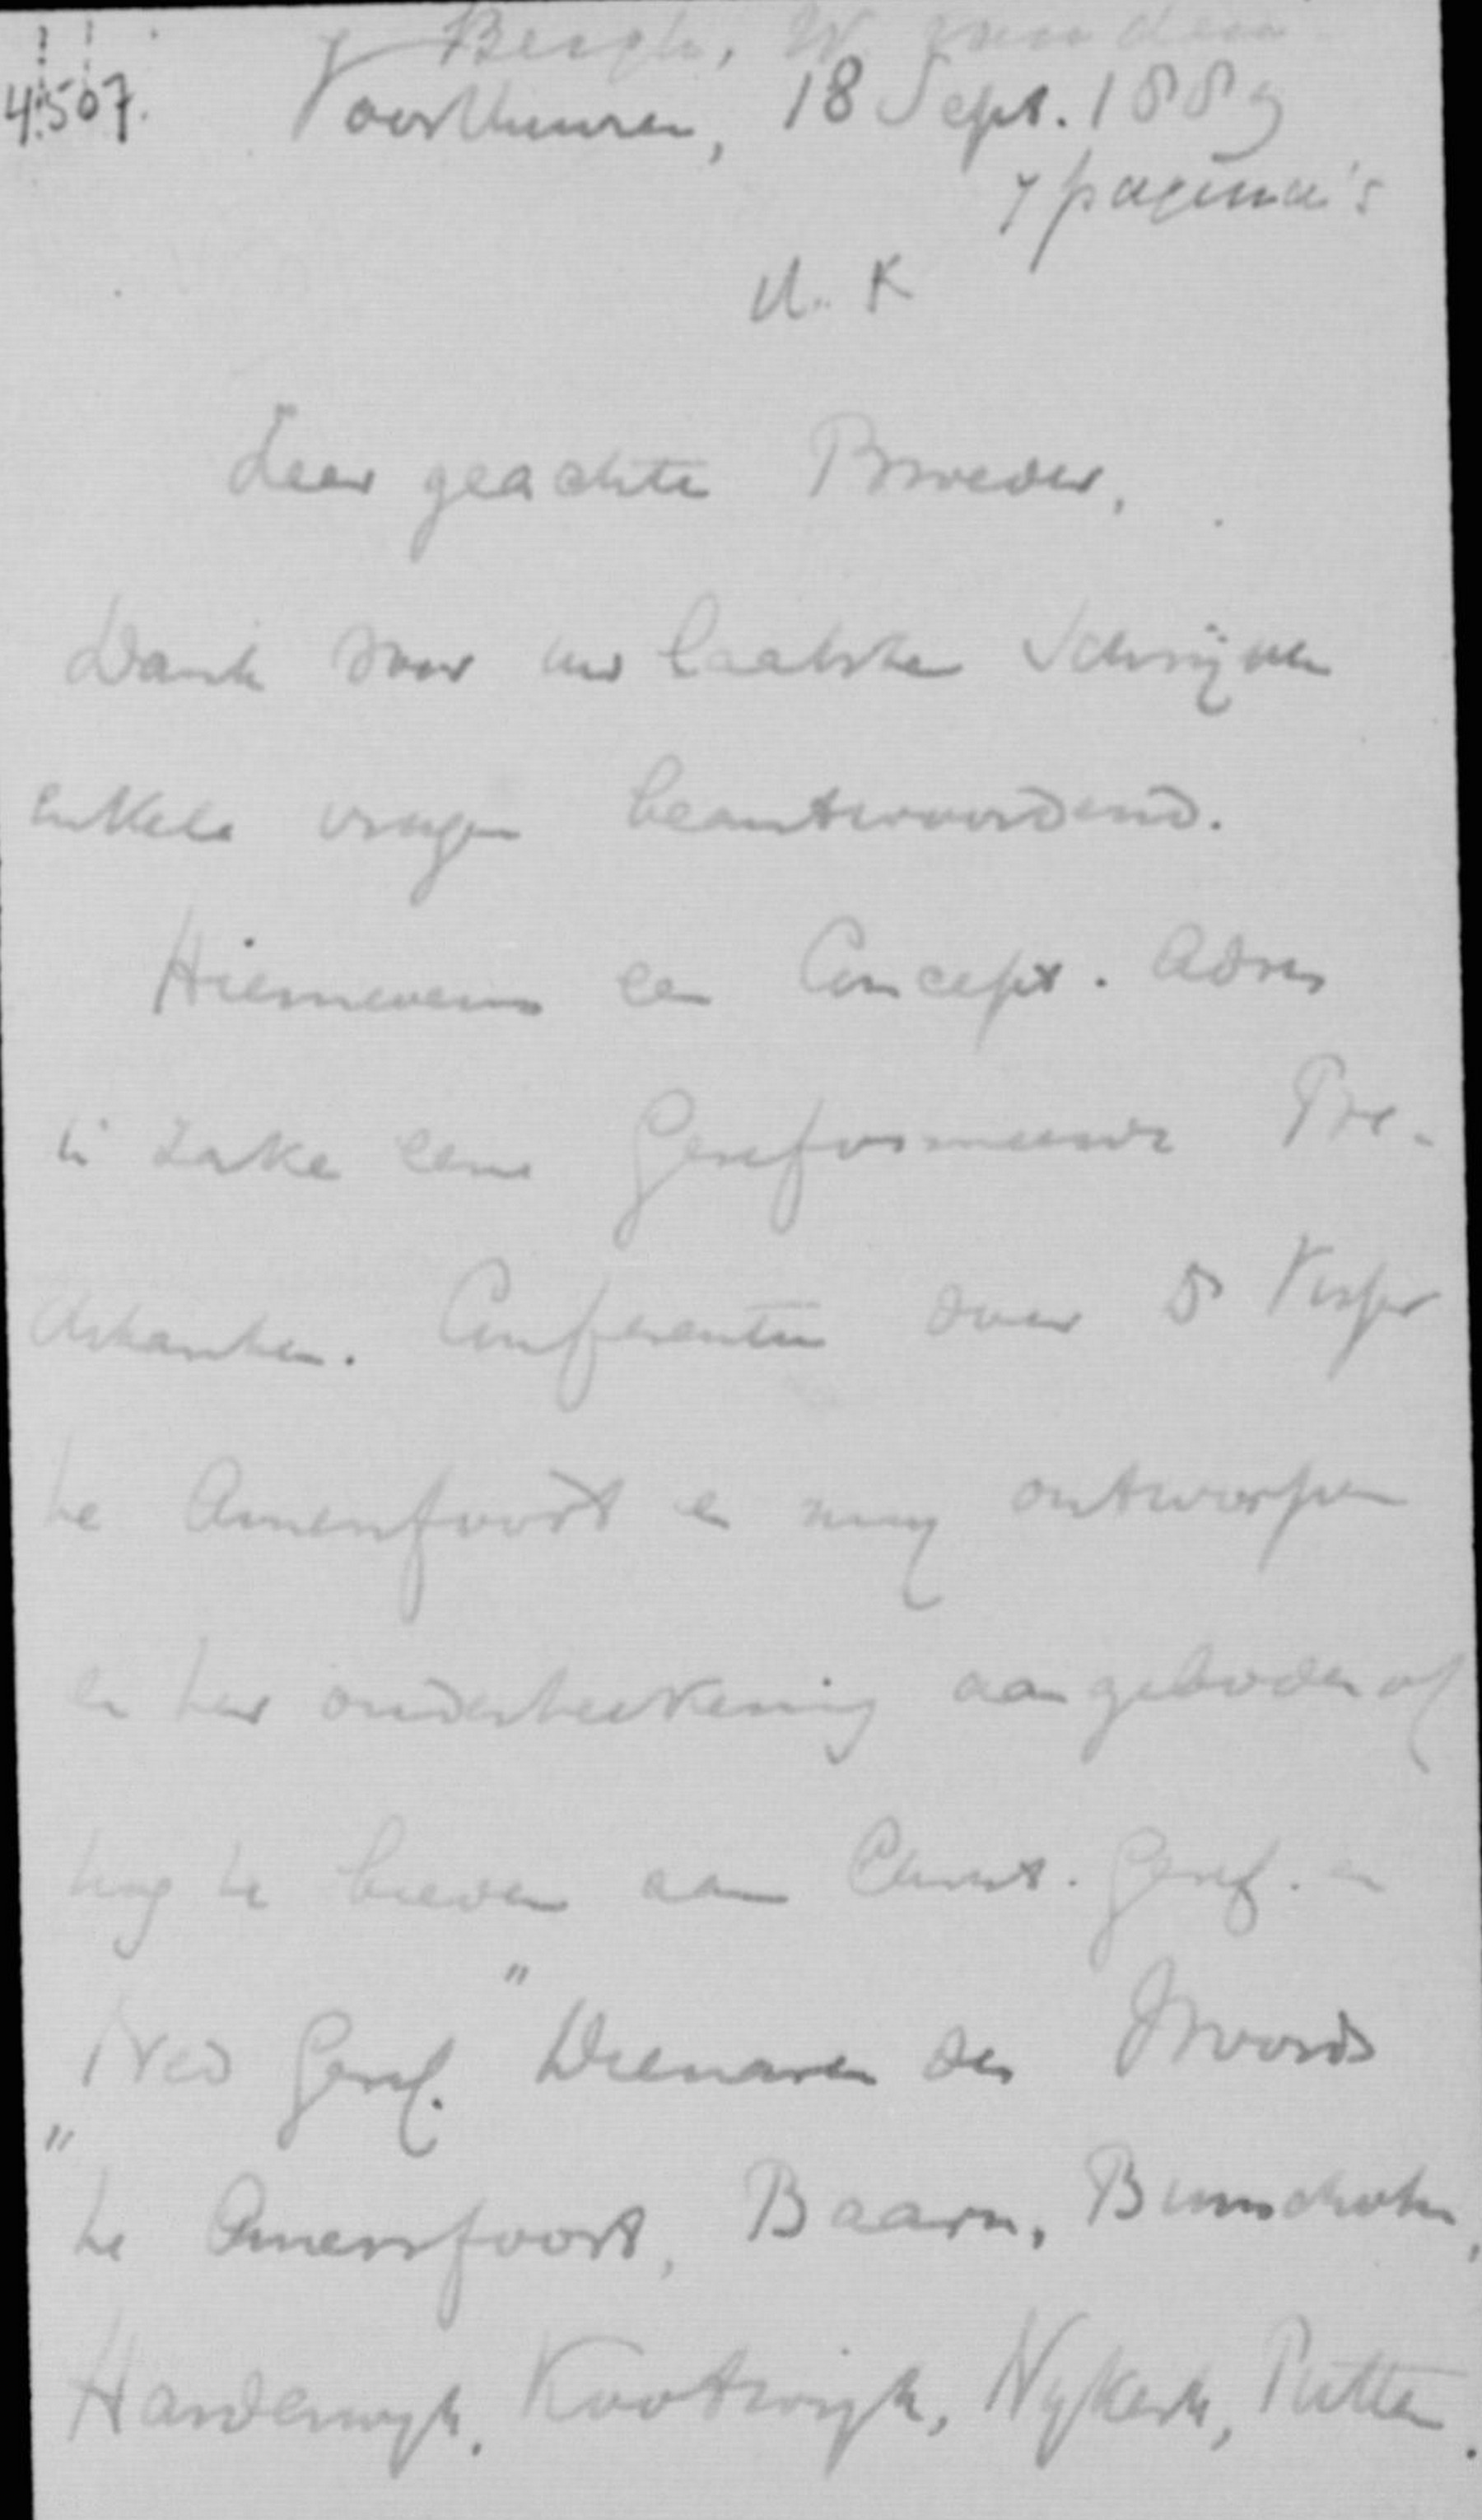 Bergh, W. van den
4507. Voorthuizen, 18 Sept. 1889
7 pagina's
A. K
Zeer geachte Broeder,
Dank voor uw laatste schrijven
enkele vragen beantwoordend.
Hiernevens een Concept. Adres
in zake eene Gereformeerde Pre-
dikanten. Conferentie door Ds Visser
te Amersfoort en mij ontworpen
en ter onderteekening aangeboden of
nog te bieden aan Christ. Geref. en
"Ned Geref." Dienaren des Woords
te Amersfoort, Baarn, Bunschoten,
Harderwijk, Kootwijk, Nijkerk, Putten.